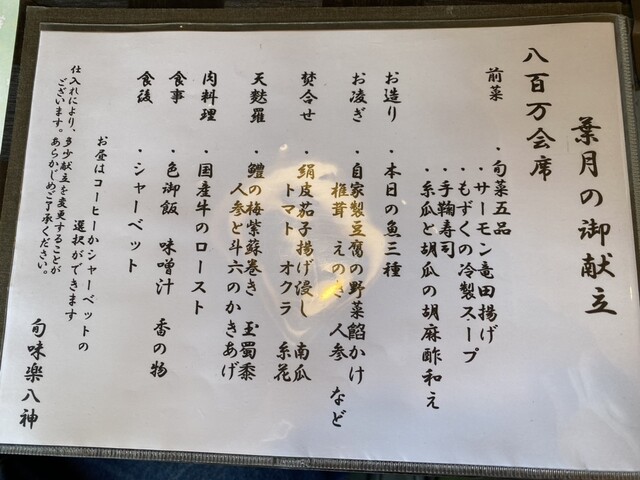 葉月の御献立
八百万会席
前菜
・旬菜五品
・サーモン竜田揚げ
・もずくの冷製スープ
・手鞠寿司
・糸瓜と胡瓜の胡麻酢和え
お造り ・本日の魚三種
お凌ぎ ・自家製豆腐の野菜餡かけ
椎茸 えのき 人参 など
焚合せ ・絹皮茄子揚げ浸し 南瓜
トマト オクラ 糸花
天麩羅 ・鱧の梅紫蘇巻き 玉蜀黍
人参と斗六のかきあげ
肉料理 ・国産牛のロースト
食事 ・色御飯 味噌汁 香の物
食後 ・シャーベット
お昼はコーヒーかシャーベットの
選択ができます
仕入れにより、多少献立を変更することが
ございます。あらかじめご了承ください。
旬味楽八神